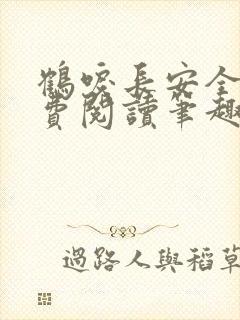 鶴唳長安全
費閱讀筆趣
過路人與稻草